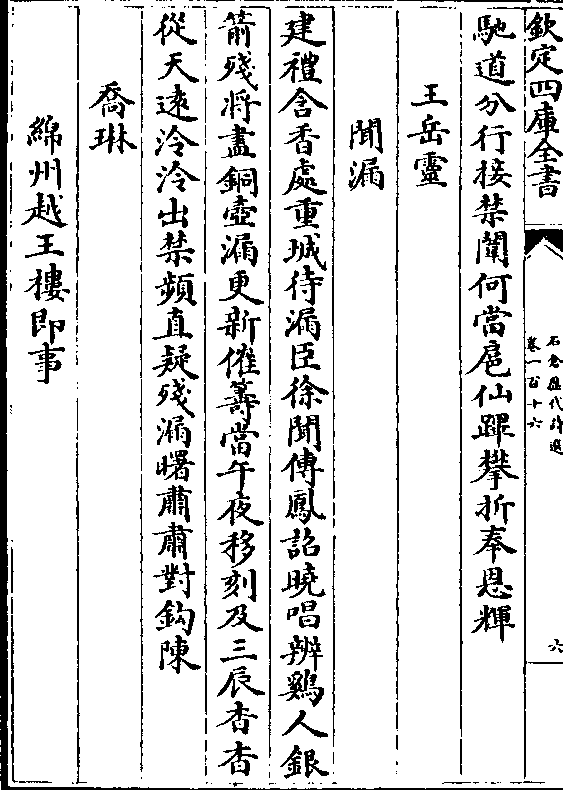 欽定四庫全書
石倉歷代詩選
卷一百十六
六
馳道分行接禁闈何當扈仙蹕攀折奉恩輝
王岳靈
聞漏
建禮含香處重城待漏臣徐聞傳鳳詔曉唱辨鷄人銀
箭殘將盡銅壺漏更新催籌當午夜移刻及三辰杳杳
從天遠泠泠出禁頻直疑殘漏曙肅肅對鈎陳
喬琳
綿州越王樓即事